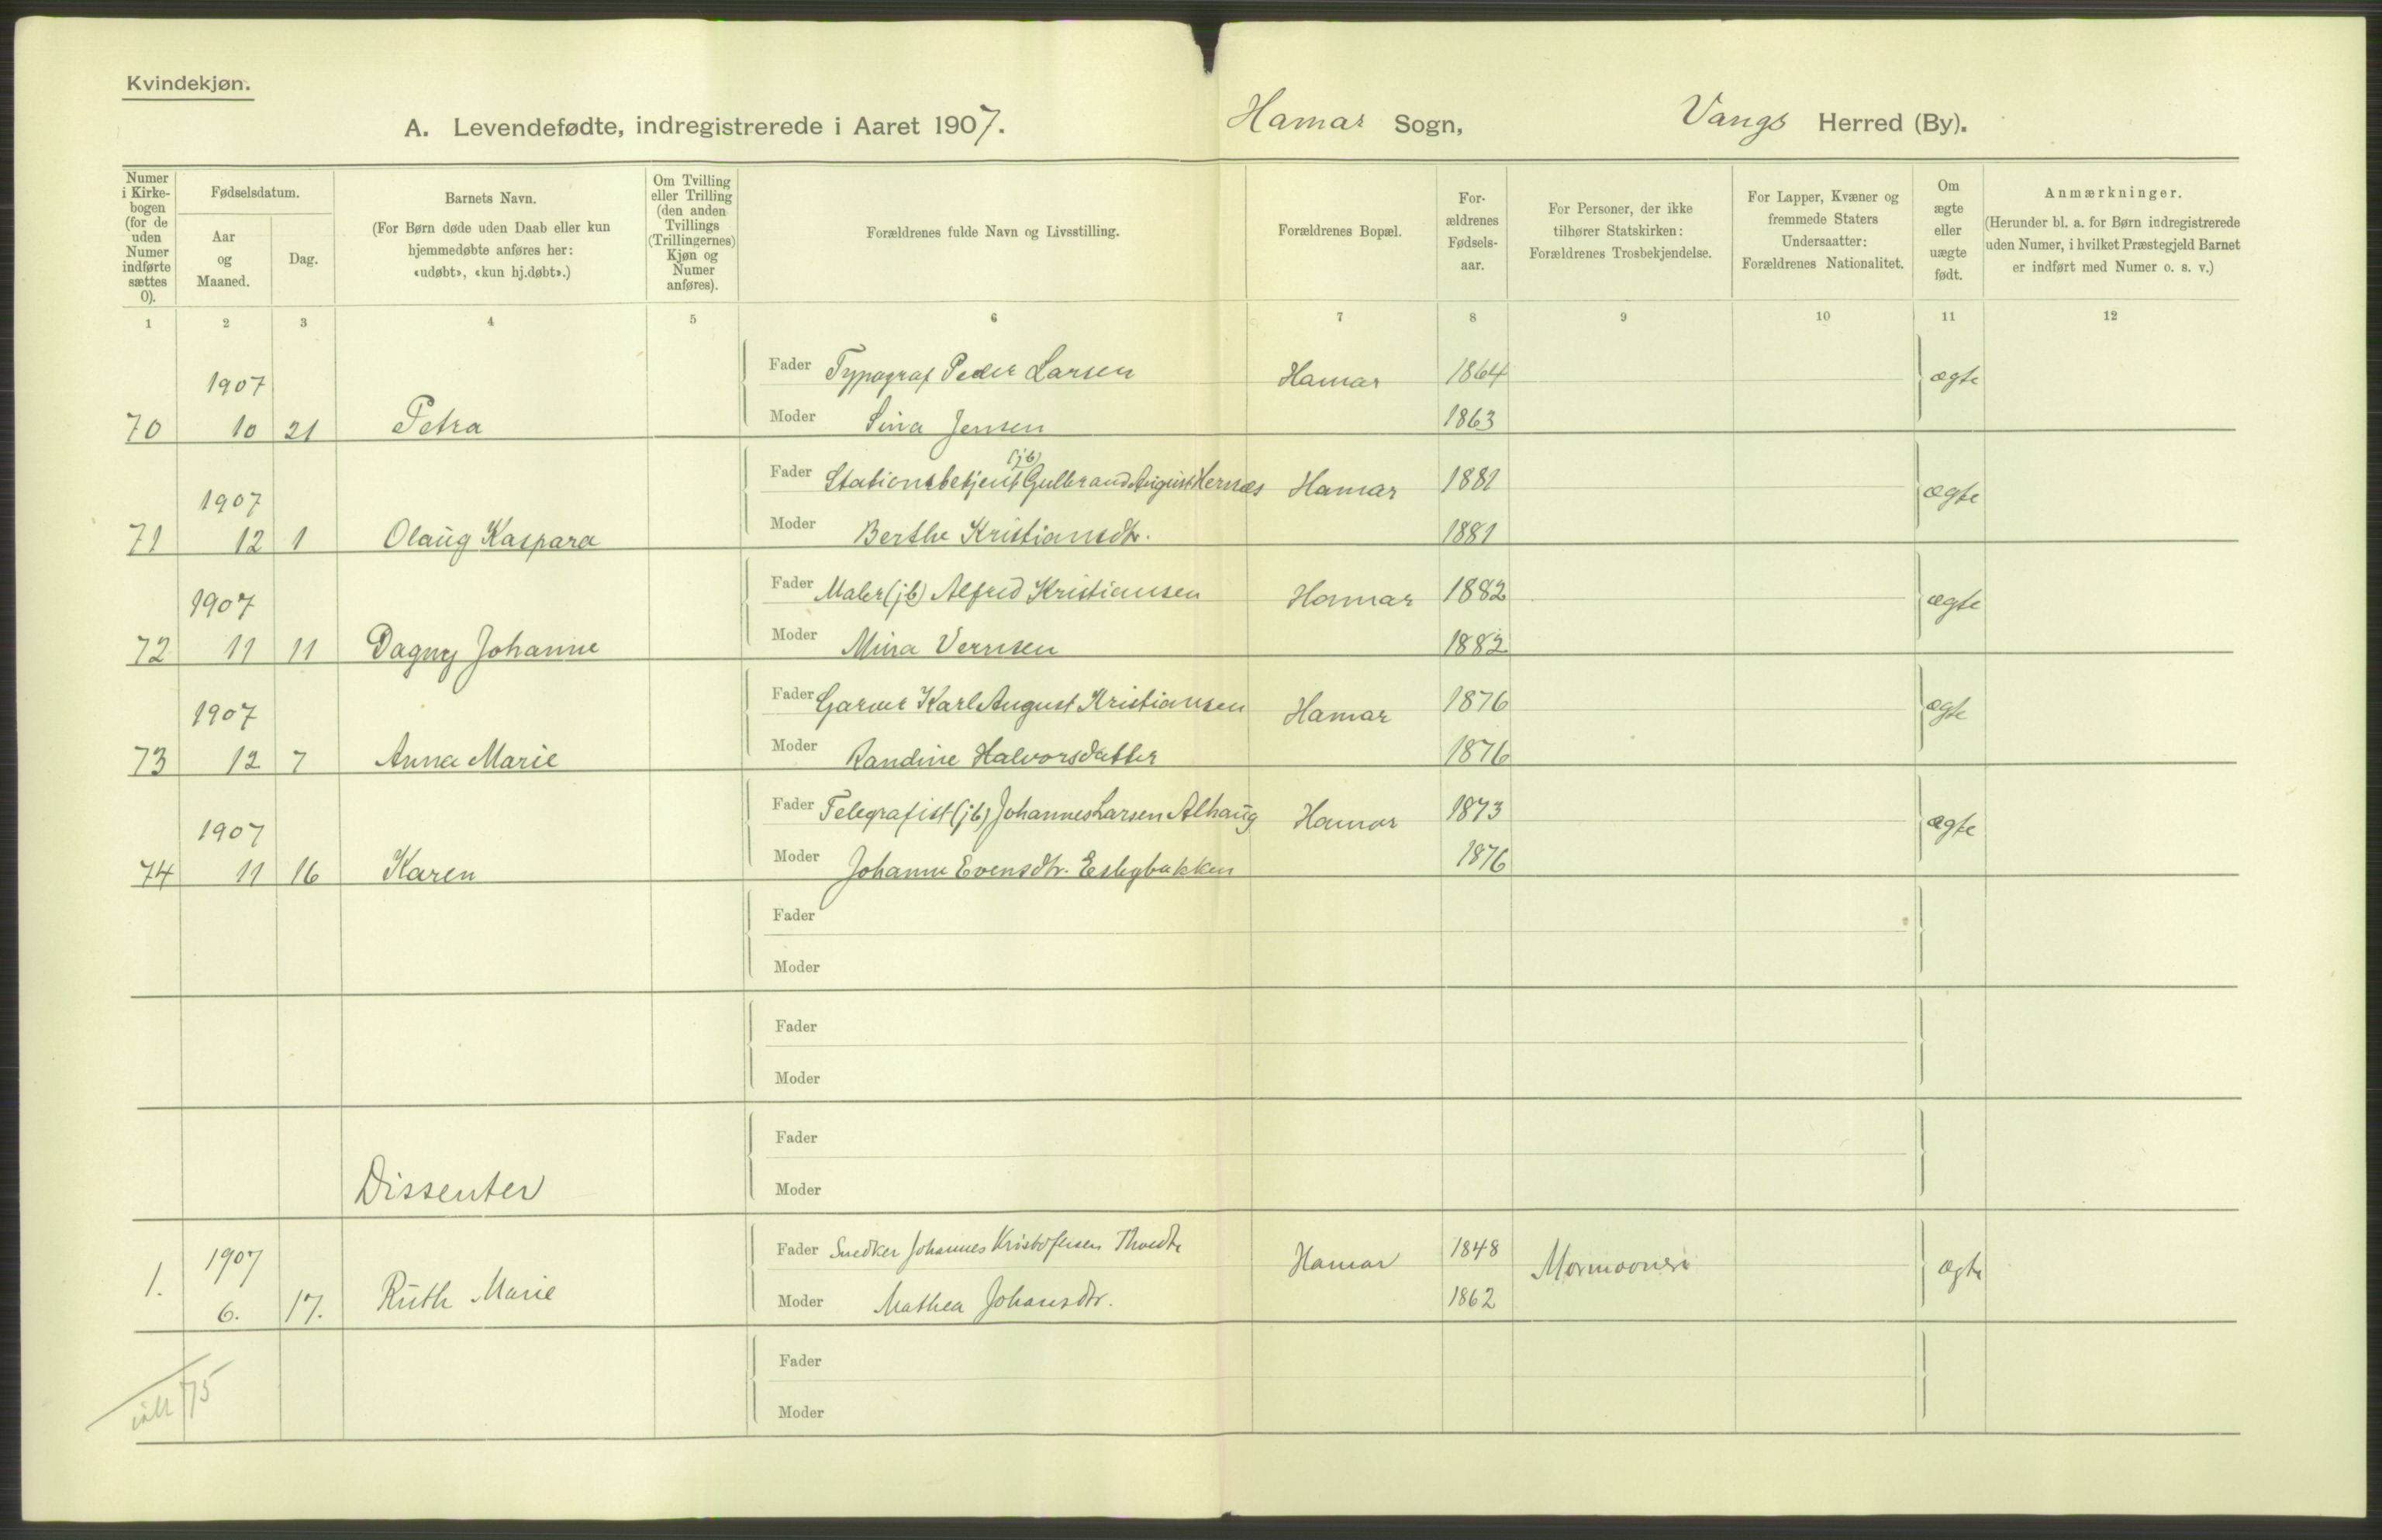 Kvindekjøn.
A. Levendefødte, indregistrerede i Aaret 1907. Hamar Sogn, Vangs Herred (By).
Numer i Kirke-bogen (for de uden Numer indførte sættes 0).
Fødselsdatum.
Aar og Maaned.
Dag.
Barnets Navn.
(For Børn døde uden Daab eller kun
hjemmedøbte anføres her:
«udøbt», «kun hj.døbt».)
Om Tvilling
eller Trilling
(den anden
Tvillings
(Trillingernes)
Kjøn og
Numer
anføres).
Forældrenes fulde Navn og Livsstilling.
Forældrenes Bopæl.
For-
ældrenes
Fødsels-
aar.
For Personer, der ikke
tilhører Statskirken:
Forældrenes Trosbekjendelse.
For Lapper, Kvæner og
fremmede Staters
Undersaatter:
Forældrenes Nationalitet.
Om
ægte
eller
uægte
født.
Anmærkninger.
(Herunder bl. a. for Børn indregistrerede
uden Numer, i hvilket Præstegjeld Barnet
er indført med Numer o. s. v.)
1 2 3 4 5 6 7 8 9 10 11 12
1907 Fader Typograf Peder Larsen Hamar 1864 ægte
70 10 21 Petra Moder Lina Jensen 1863
1907 Fader Stationsbetjent (jb) Gulbrand August Hernæs Hamar 1881 ægte
71 12 1 Olaug Kaspara Moder Berthe Kristiansdtr. 1881
1907 Fader Maler (jb) Alfred Kristiansen Hamar 1882 ægte
72 11 11 Dagny Johanne Moder Mina Vernsen 1882
1907 Fader Garver Karl August Kristiansen Hamar 1876 ægte
73 12 7 Anna Marie Moder Randine Halvorsdatter 1876
1907 Fader Telegrafist (jb) Johannes Larsen Alhaug Hamar 1873 ægte
74 11 16 Karen Moder Johanne Evensdtr. 1876
Fader
Moder
Fader
Moder
Fader
Dissenter Moder
1. 1907 Fader Snedker Johannes Kristofersen Hamar 1848 ægte
6. 17. Ruth Marie Moder Mathea Johansdtr. 1862
Fader
ialt 75
Moder